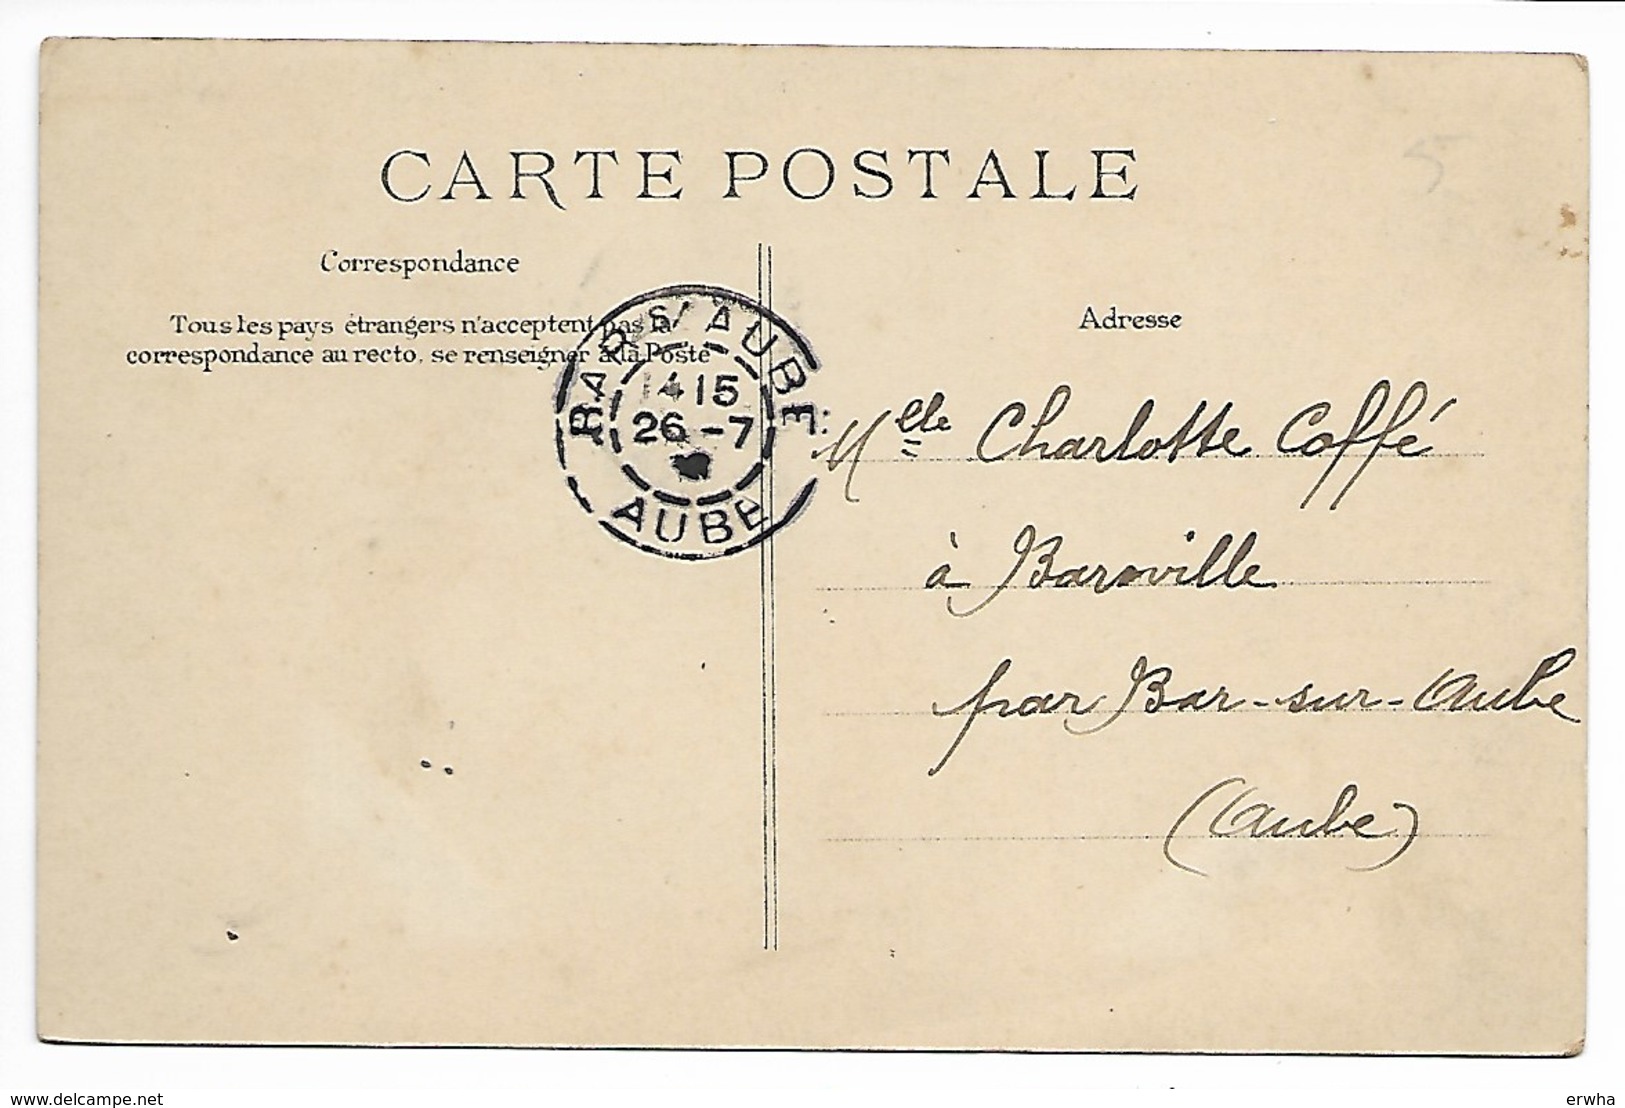 CARTE POSTALE
Correspondance
Tous les pays étrangers n'acceptent pas la
correspondance au recto, se renseigner à la Poste
BAR S/ AUBE
14 15
26 -7
AUBE
Adresse
Mlle Charlotte Coffé
à Baroville
par Bar-sur-Aube
(Aube)
www.delcampe.net
erwha